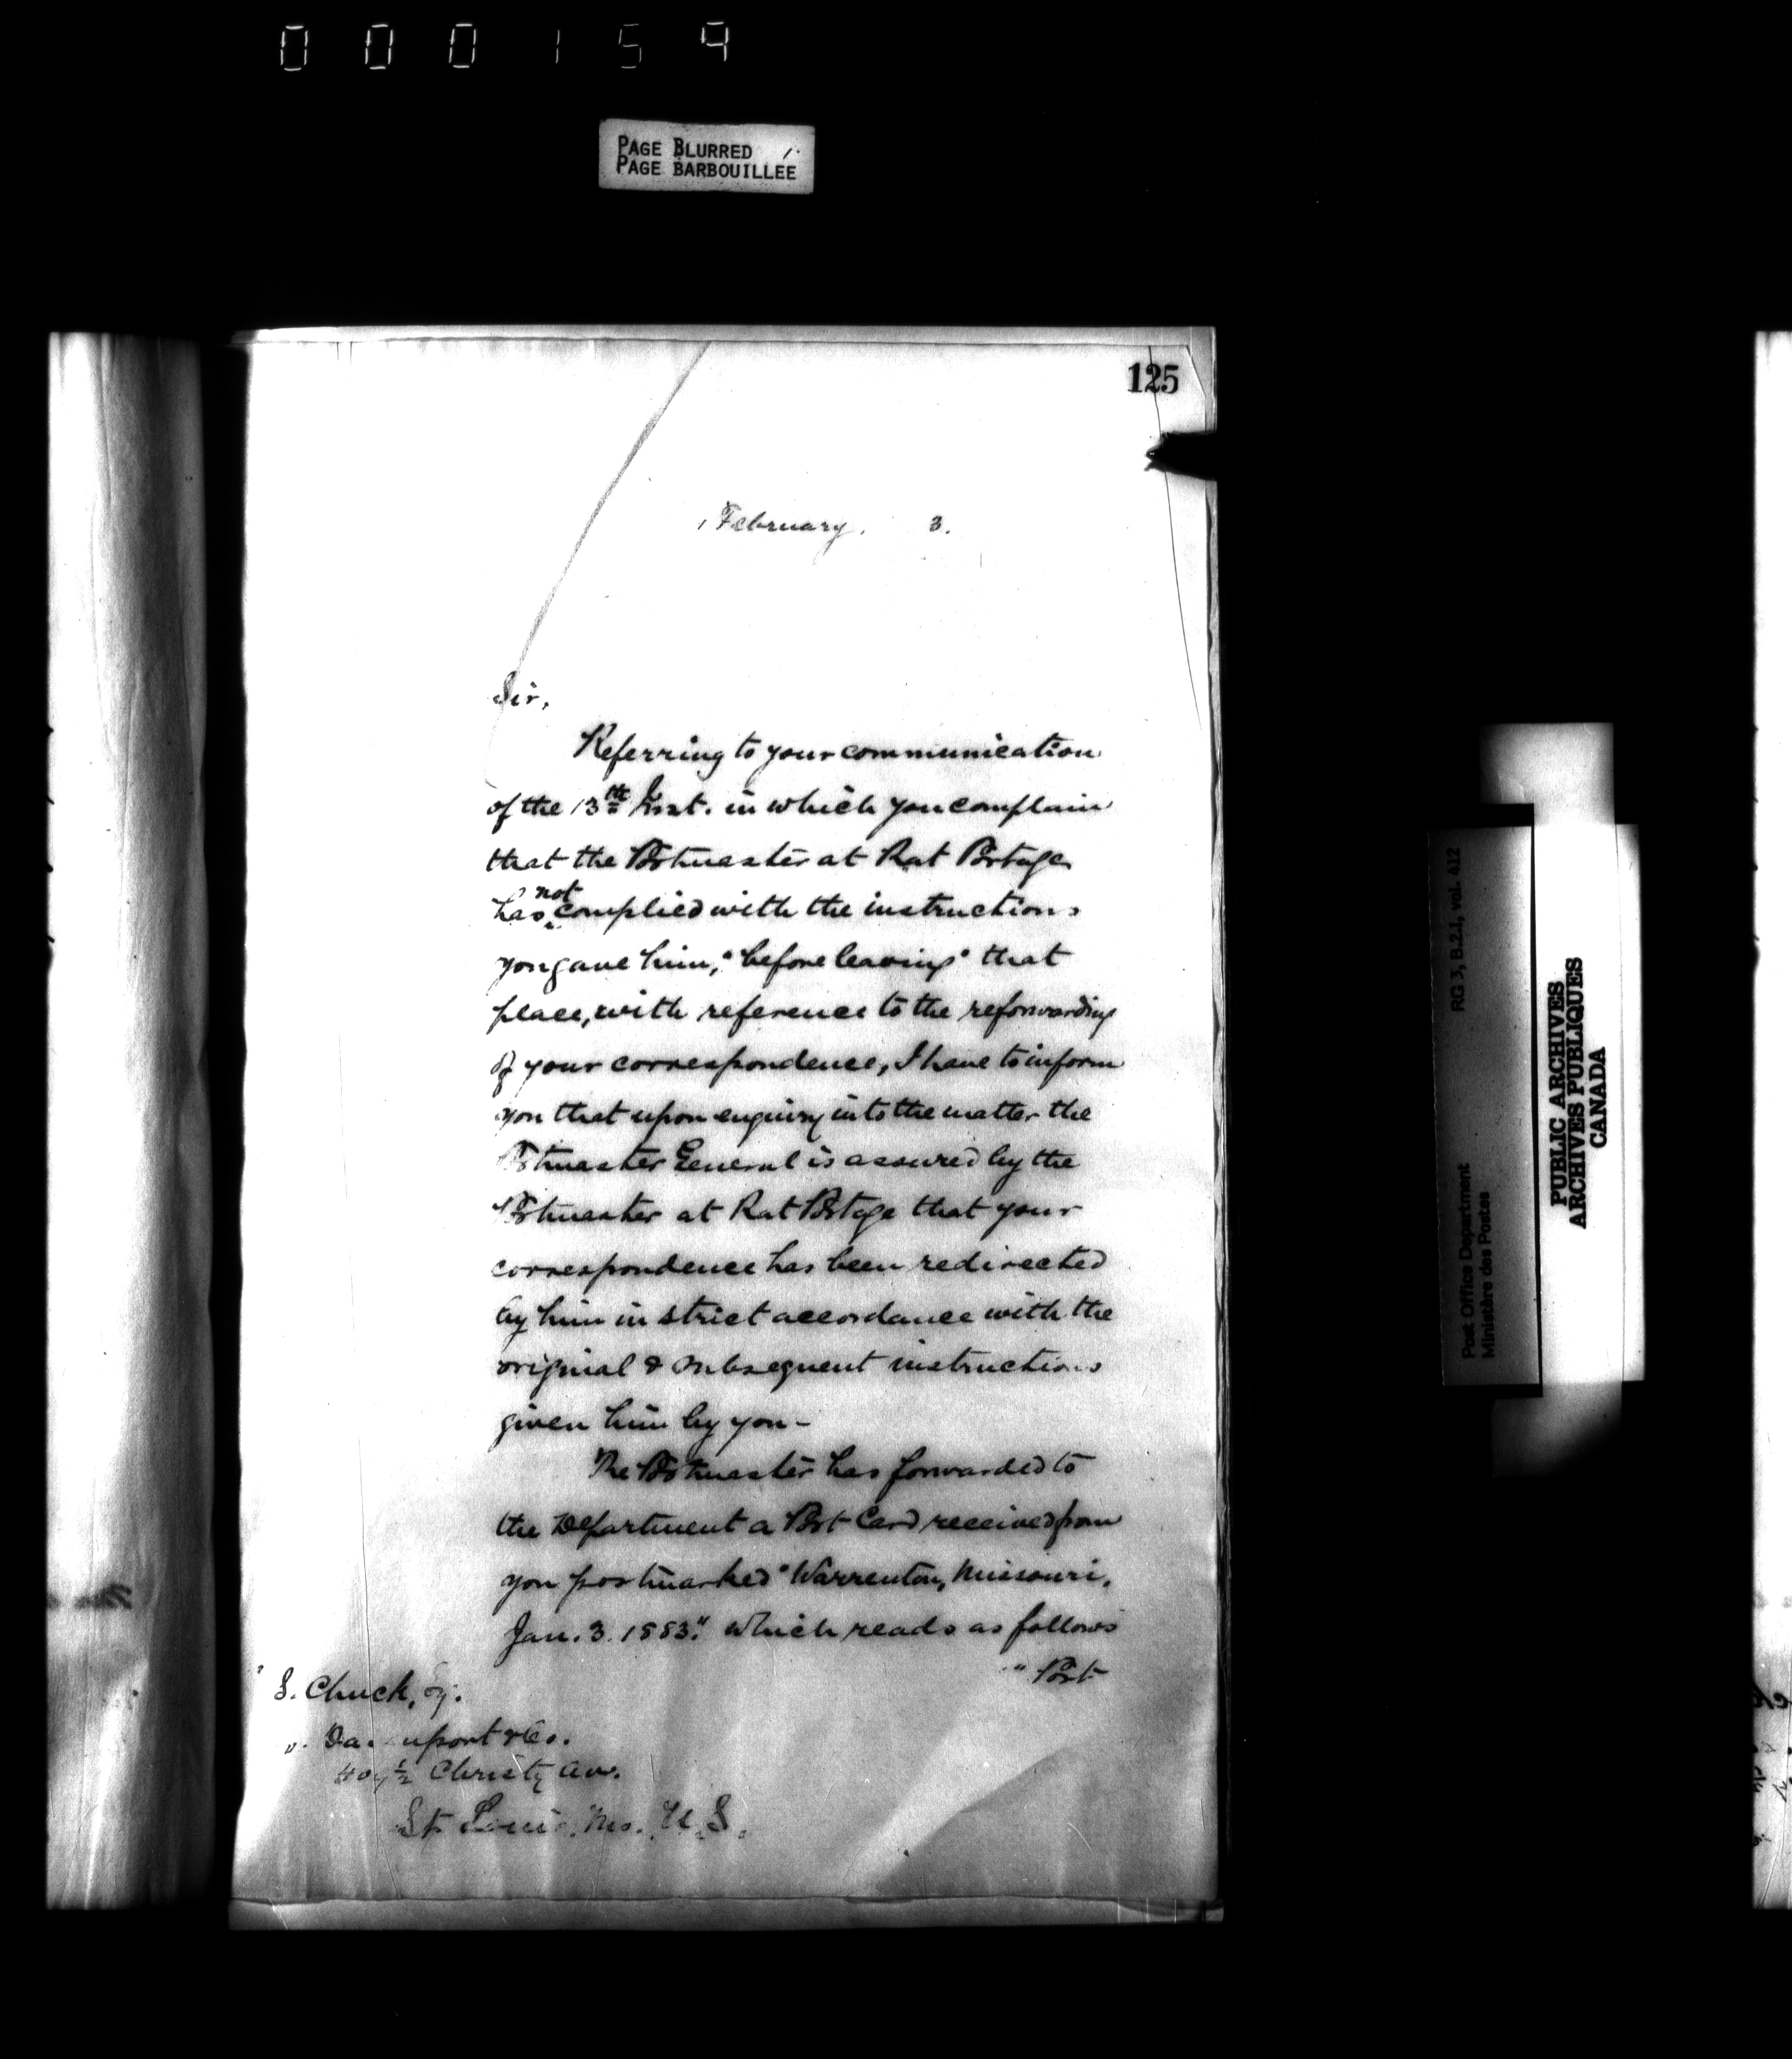 000159
PAGE BLURRED
PAGE BARBOUILLEE
125
February. 3.
Sir,
Referring to your communication
of the 13th Inst. in which you complain
that the Postmaster at Rat Portage
has not complied with the instructions
you gave him, "before leaving" that
place, with reference to the reforwarding
of your correspondence, I have to inform
you that upon enquiry into the matter the
Postmaster General is assured by the
Postmaster at Rat Portage that your
correspondence has been redirected
by him in strict accordance with the
original & subsequent instructions
given him by you -
The Postmaster has forwarded to
the Department a Post Card received from
you postmarked "Warrenton, Missouri,
Jan. 3. 1883." which reads as follows
" Post
S. Chuck, Esq.
& Co.
½ Christy Av.
St. Louis, Mo. U.S.
RG 3, B.2.1, vol. 412
Post Office Department
Ministère des Postes
PUBLIC ARCHIVES
ARCHIVES PUBLIQUES
CANADA